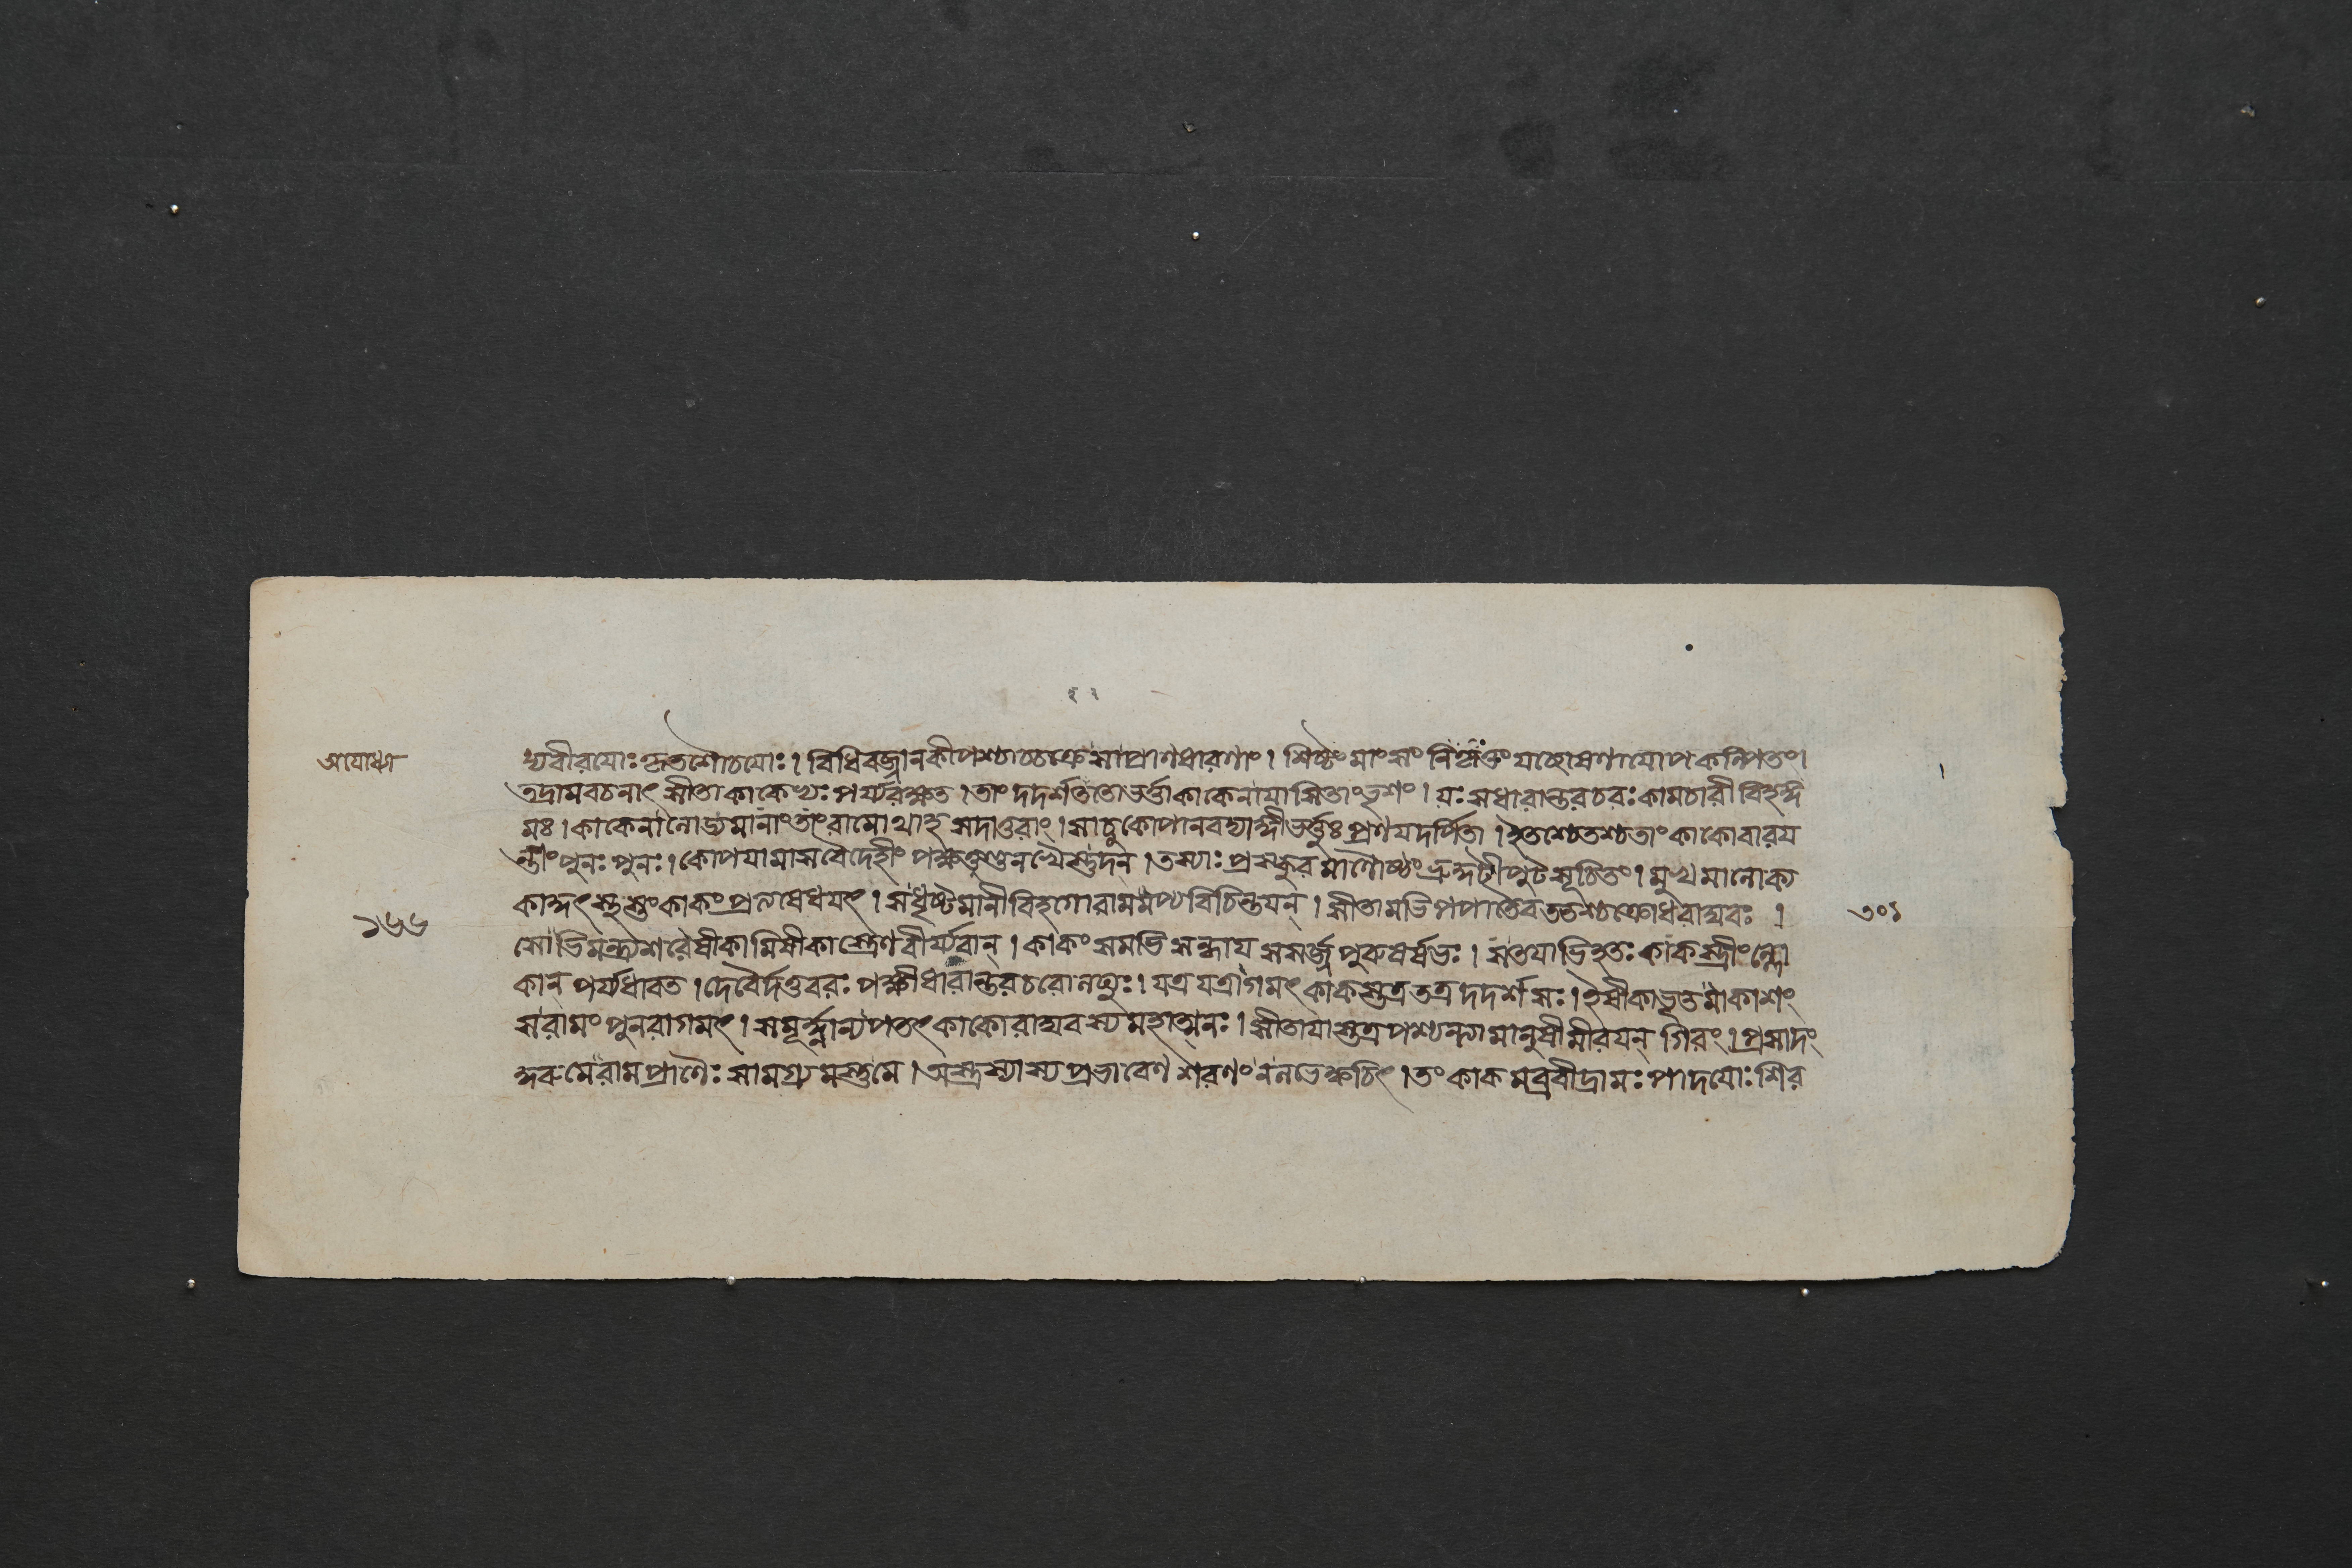 अयोध्या
২২
থ্যবীরযোঃ কৃতশৌচযোঃ। বিধিবজ্জানকীপশ্চাচ্চক্রে সাপ্রাণধারণাং। শিষ্টং মাংসং নিযচ্ছোষণাযোপকল্পিতং।
তদ্রামবচনাৎ সীতা কাকেভ্যঃ পর্য্যরক্ষত। তাং দদর্শততোভর্ত্তাকাকেনাযাসিতাংভৃশং। যঃ সধারান্তরচরঃ কামচারী বিহঙ্গ
মঃ। কাকেনালোড্যমানাংতাং রামোথাহসদাতুরাং। সাচুকোপানবদ্যাঙ্গীভর্ত্তুঃ প্রণযদর্পিতা। ইতশ্চেতশ্চতাং কাকোবারয
ন্তীং পুনঃ পুনঃ। কোপযামাসবৈদেহীং পক্ষতুণ্ডনখৈস্তুদন্। তস্যাঃ প্রস্ফুরমাণোষ্ঠং ভ্রুকুটীপুটসূচিতং। মুখমালোক্য
কাকুৎস্থস্তংকাকং প্রত্যষেধযৎ। সধৃষ্টমানীবিহগোরামমপ্যবিচিন্তযন্। সীতামভিপপাতৈবততশ্চক্রোধরাঘবঃ।
১৬৬
৩০১
সোভিমন্ত্র্যশরেষীকামিষীকাস্ত্রেণবীর্য্যবান্। কাকং সমভিসন্ধায সসর্জ্জপুরুষর্ষভঃ। সতযাভিহতঃ কাকস্ত্রীংল্লো
কান্ পর্য্যধাবত। দেবৈর্দত্তবরঃ পক্ষীধারান্তরচরোলঘুঃ। যত্র যত্রাগমৎ কাকস্তত্র তত্র দদর্শ সঃ। ইষীকাভূতমাকাশং
সরামং পুনরাগমৎ। সমূর্দ্ধ্নান্যপতৎ কাকোরাঘবস্যমহাত্মনঃ। সীতাযাস্তত্র পশ্যন্ত্যামানুষীমীরযন্ গিরং। প্রসাদং
কুরুমেরামপ্রাণৈঃ সামগ্র্যমস্তুমে। অস্ত্রস্যাস্যপ্রভাবেণ শরণং নলভেক্বচিৎ। তং কাকমব্রবীদ্রামঃ পাদযোঃ শির